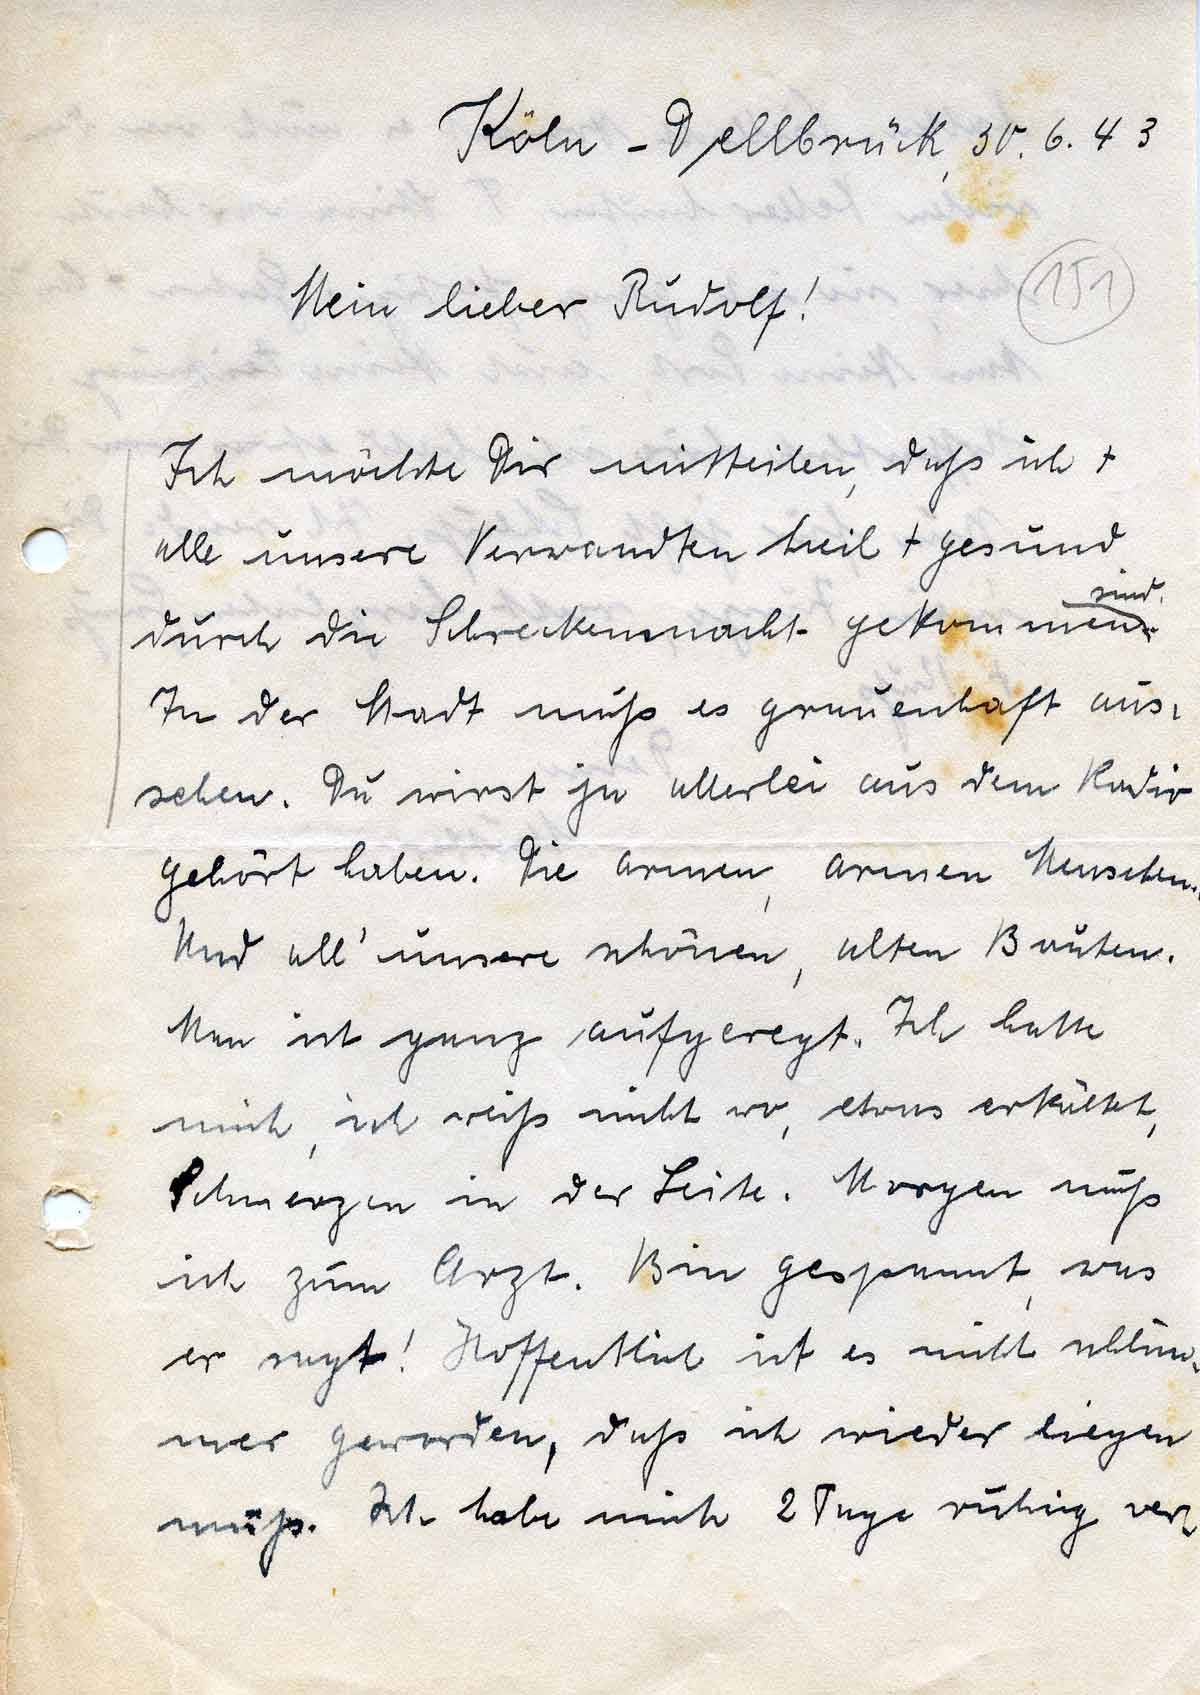 Köln - Dellbrück, 30. 6. 43
151
Mein lieber Rudolf!
Ich möchte Dir mitteilen, daß ich +
alle unsere Verwandten heil + gesund
durch die Schreckensnacht gekommen sind.
In der Stadt muß es grauenhaft aus-
sehen. Du wirst ja allerlei aus dem Radio
gehört haben. Die armen, armen Menschen.
Und all' unsere schönen, alten Bauten.
Man ist ganz aufgeregt. Ich hatte
mich, ich weiß nicht wo, etwas erkältet,
Schmerzen in der Seite. Morgen muß
ich zum Arzt. Bin gespannt, was
er sagt! Hoffentlich ist es nicht schlim-
mer geworden, daß ich wieder liegen
muß. Ich habe mich 2 Tage ruhig ver-